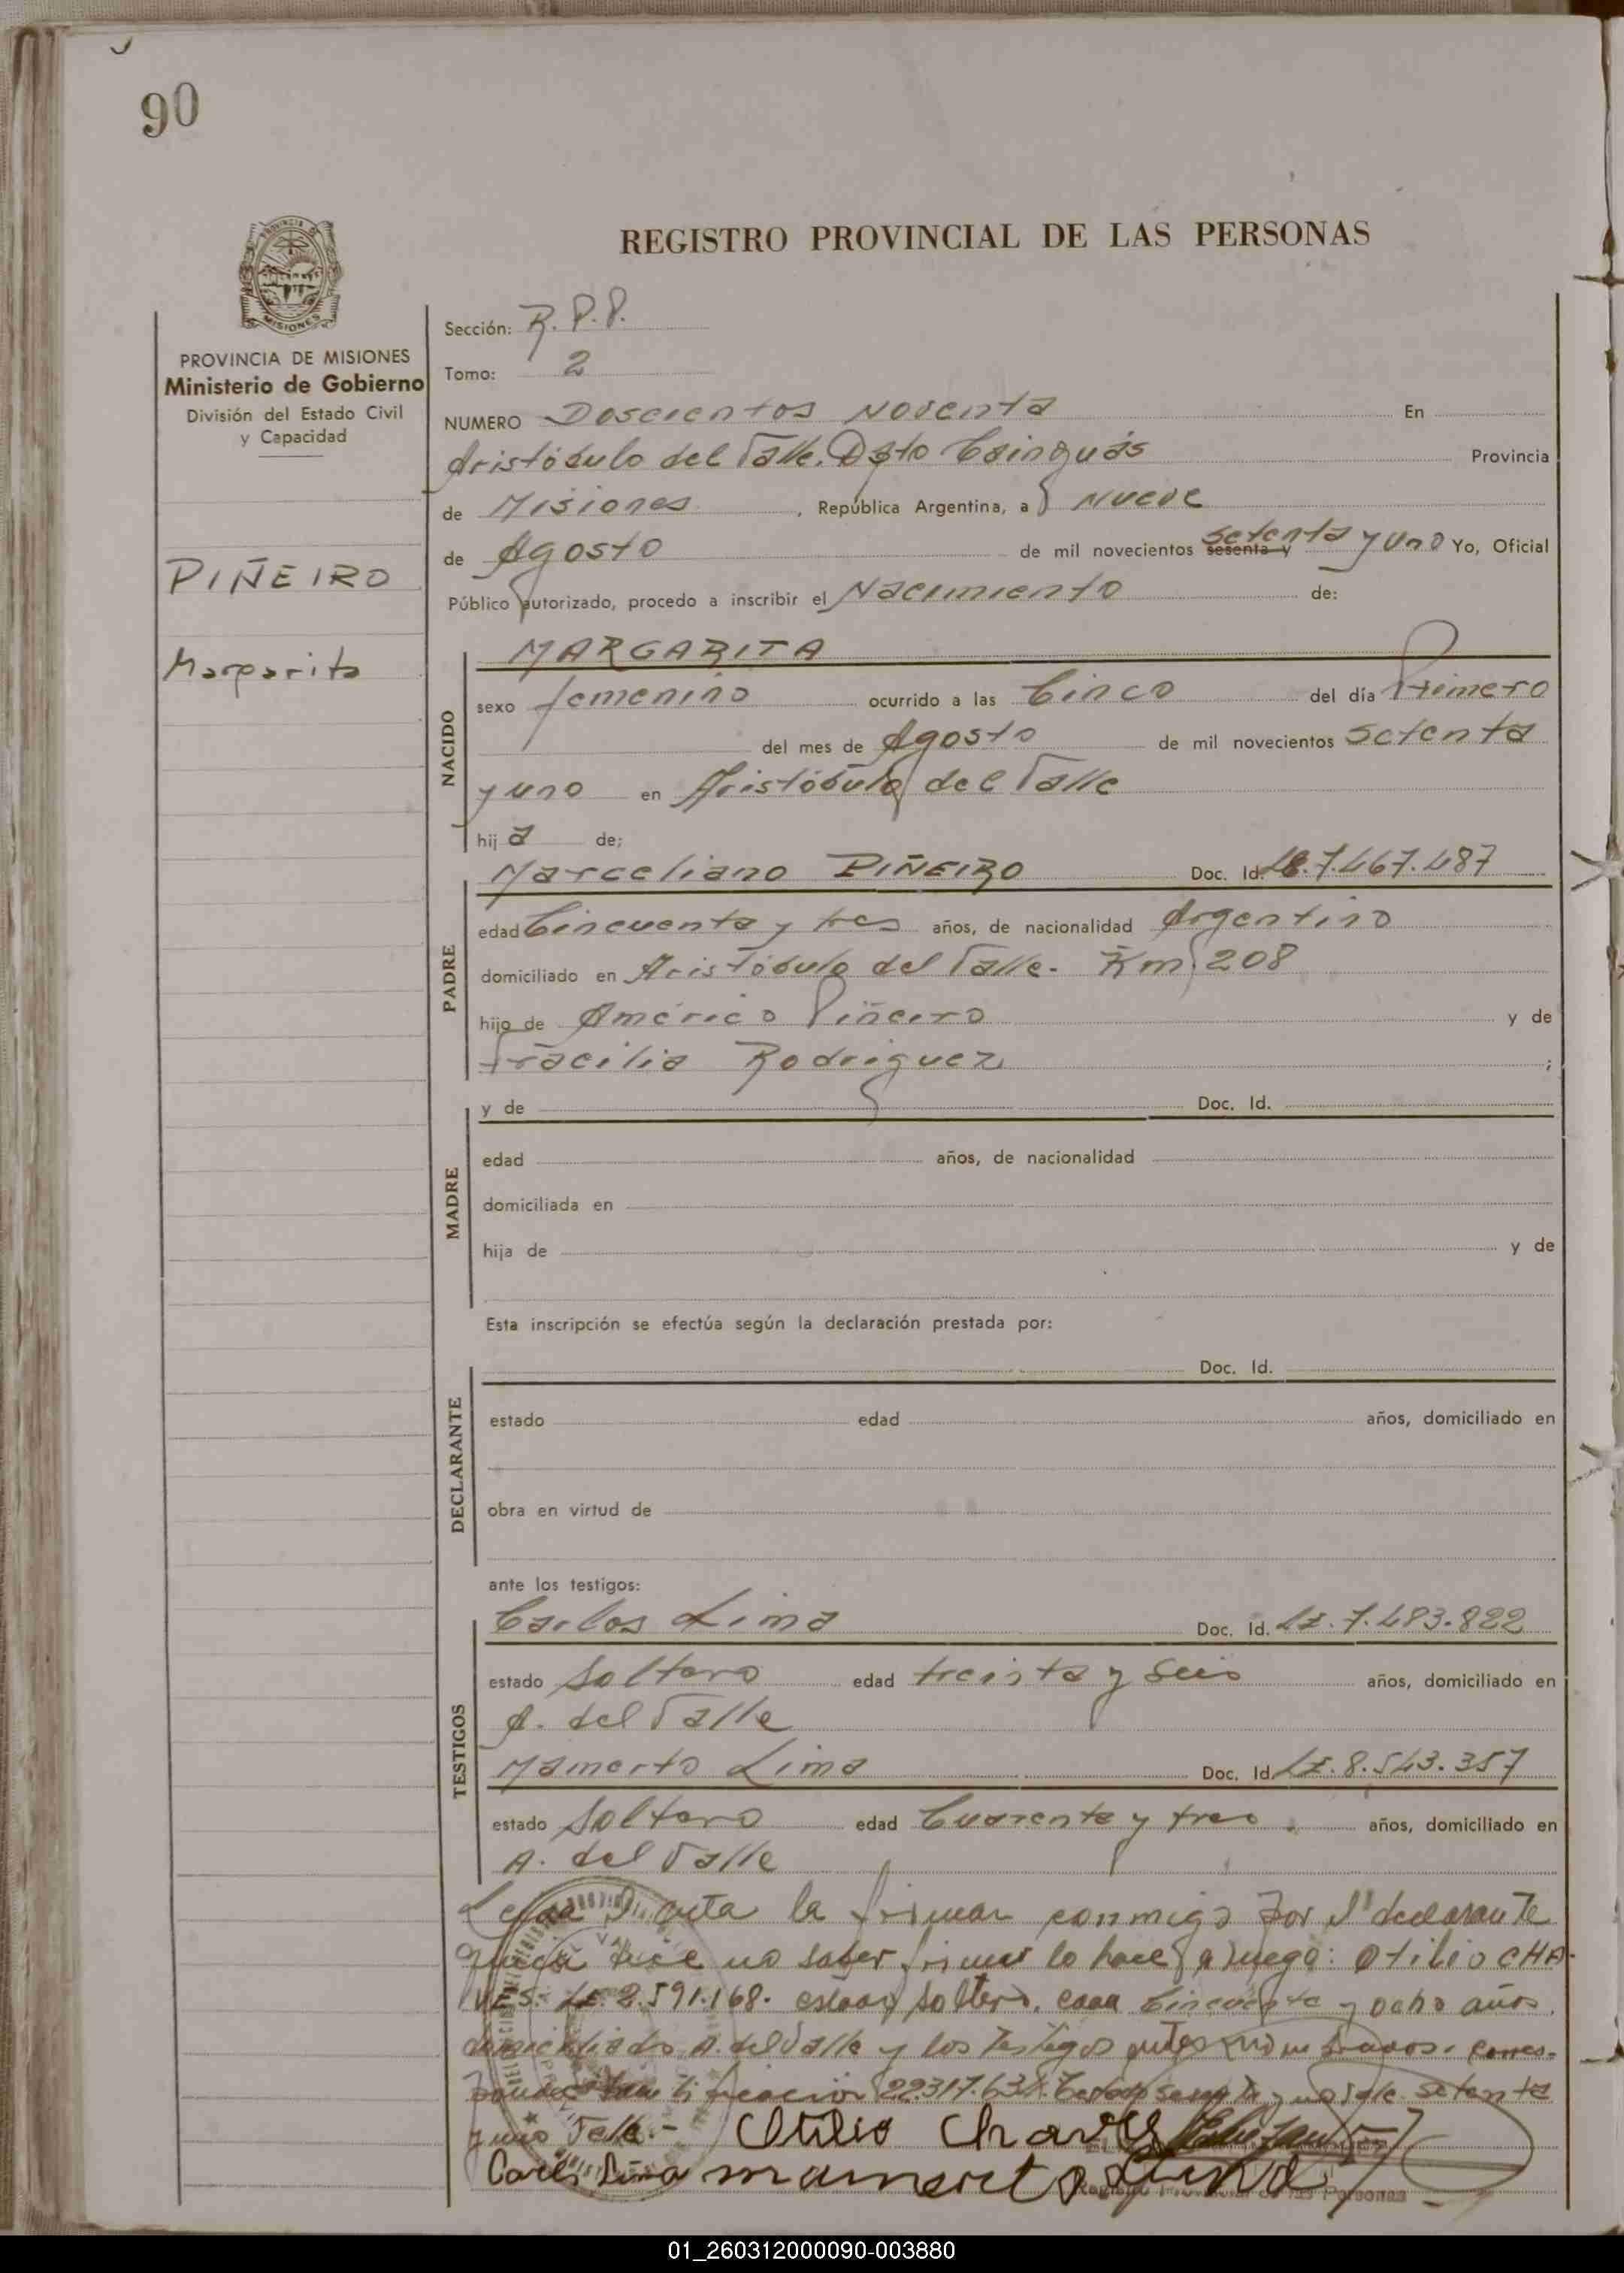 90
REGISTRO PROVINCIAL DE LAS PERSONAS
MISIONES
PROVINCIA DE MISIONES
Ministerio de Gobierno
División del Estado Civil
y Capacidad
PIÑEIRO
Margarita
Sección: R.P.P.
Tomo: 2
NUMERO Doscientos Noventa En
Aristóbulo del Valle. Dpto Cainguás Provincia
de Misiones , República Argentina, a Nueve
de Agosto de mil novecientos sesenta y setenta y uno Yo, Oficial
Público autorizado, procedo a inscribir el Nacimiento de:
NACIDO
MARGARITA
sexo femenino ocurrido a las Cinco del día Primero
del mes de Agosto de mil novecientos Setenta
y uno en Aristóbulo del Valle
hija de;
PADRE
Marceliano PIÑEIRO Doc. Id. LE.7.467.487
edad Cincuenta y tres años, de nacionalidad Argentino
domiciliado en Aristóbulo del Valle. Km. 208
hijo de Américo Piñeiro y de
Rodriguez ;
MADRE
y de Doc. Id.
edad años, de nacionalidad
domiciliada en
hija de y de
Esta inscripción se efectúa según la declaración prestada por:
DECLARANTE
Doc. Id.
estado edad años, domiciliado en
obra en virtud de
ante los testigos:
TESTIGOS
Carlos Lima Doc. Id. LE.7.483.822
estado Soltero edad treinta y Seis años, domiciliado en
A. del Valle
Mamerto Lima Doc. Id. LE.8.543.357
estado Soltero edad Cuarenta y tres. años, domiciliado en
A. del Valle
Leída Acta la firman conmigo por el declarante
quien dice no saber firmar lo hace a ruego: Otilio CHA-
VES. LE. 2.591.168. estado soltero. edad Cincuenta y ocho años.
domiciliado A. del Valle y los testigos antes nombrados. Corres-
ponde 22.317.631. setenta
y uno Vale.- Otilio Chaves
Carlos Lima mamerto Lima
Registro Provincial de las Personas
01_260312000090-003880